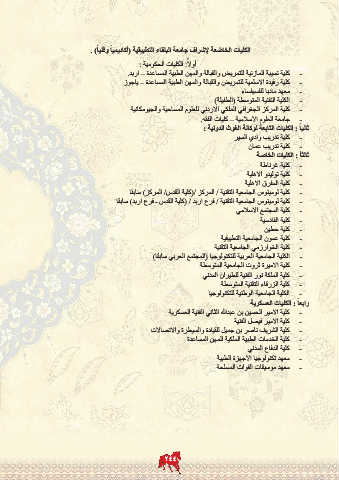 الكليات الخاضعة لإشراف جامعة البلقاء التطبيقية (أكاديمياً وفنياً) .
أولاً: الكليات الحكومية :
- كلية نسيبة المازنية للتمريض والقبالة والمهن الطبية المساعدة – اربد.
- كلية رفيدة الاسلمية للتمريض والقبالة والمهن الطبية المساعدة – ياجوز
- معهد مادبا للفسيفساء
- الكلية التقنية المتوسطة (الطفيلة)
- كلية المركز الجغرافي الملكي الاردني للعلوم المساحية والجيوماتكية
- جامعة العلوم الإسلامية – كليات الفقه.
ثانياً : الكليات التابعة لوكالة الغوث الدولية :
- كلية تدريب وادي السير
- كلية تدريب عمان
ثالثاً : الكليات الخاصة
- كلية غرناطة
- كلية توليدو الاهلية
- كلية المفرق الاهلية
- كلية لومينوس الجامعية التقنية / المركز /(كلية القدس/ المركز) سابقا
- كلية لومينوس الجامعية التقنية / فرع اربد / (كلية القدس - فرع اربد) سابقا
- كلية المجتمع الإسلامي
- كلية القادسية
- كلية حطين
- كلية عمون الجامعية التطبيقية
- كلية الخوارزمي الجامعية التقنية
- الكلية الجامعية العربية للتكنولوجيا (المجتمع العربي سابقا)
- كلية الاميرة ثروت الجامعية المتوسطة
- كلية الملكة نور الفنية للطيران المدني
- كلية الزرقاء التقنية المتوسطة
- الكلية الجامعية الوطنية للتكنولوجيا
رابعاً : الكليات العسكرية
- كلية الامير الحسين بن عبدالله الثاني الفنية العسكرية
- كلية الامير فيصل الفنية
- كلية الشريف ناصر بن جميل للقيادة والسيطرة والاتصالات
- كلية الخدمات الطبية الملكية للمهن المساعدة
- كلية الدفاع المدني
- معهد تكنولوجيا الاجهزة الطبية
- معهد موسيقات القوات المسلحة
٢٤٤